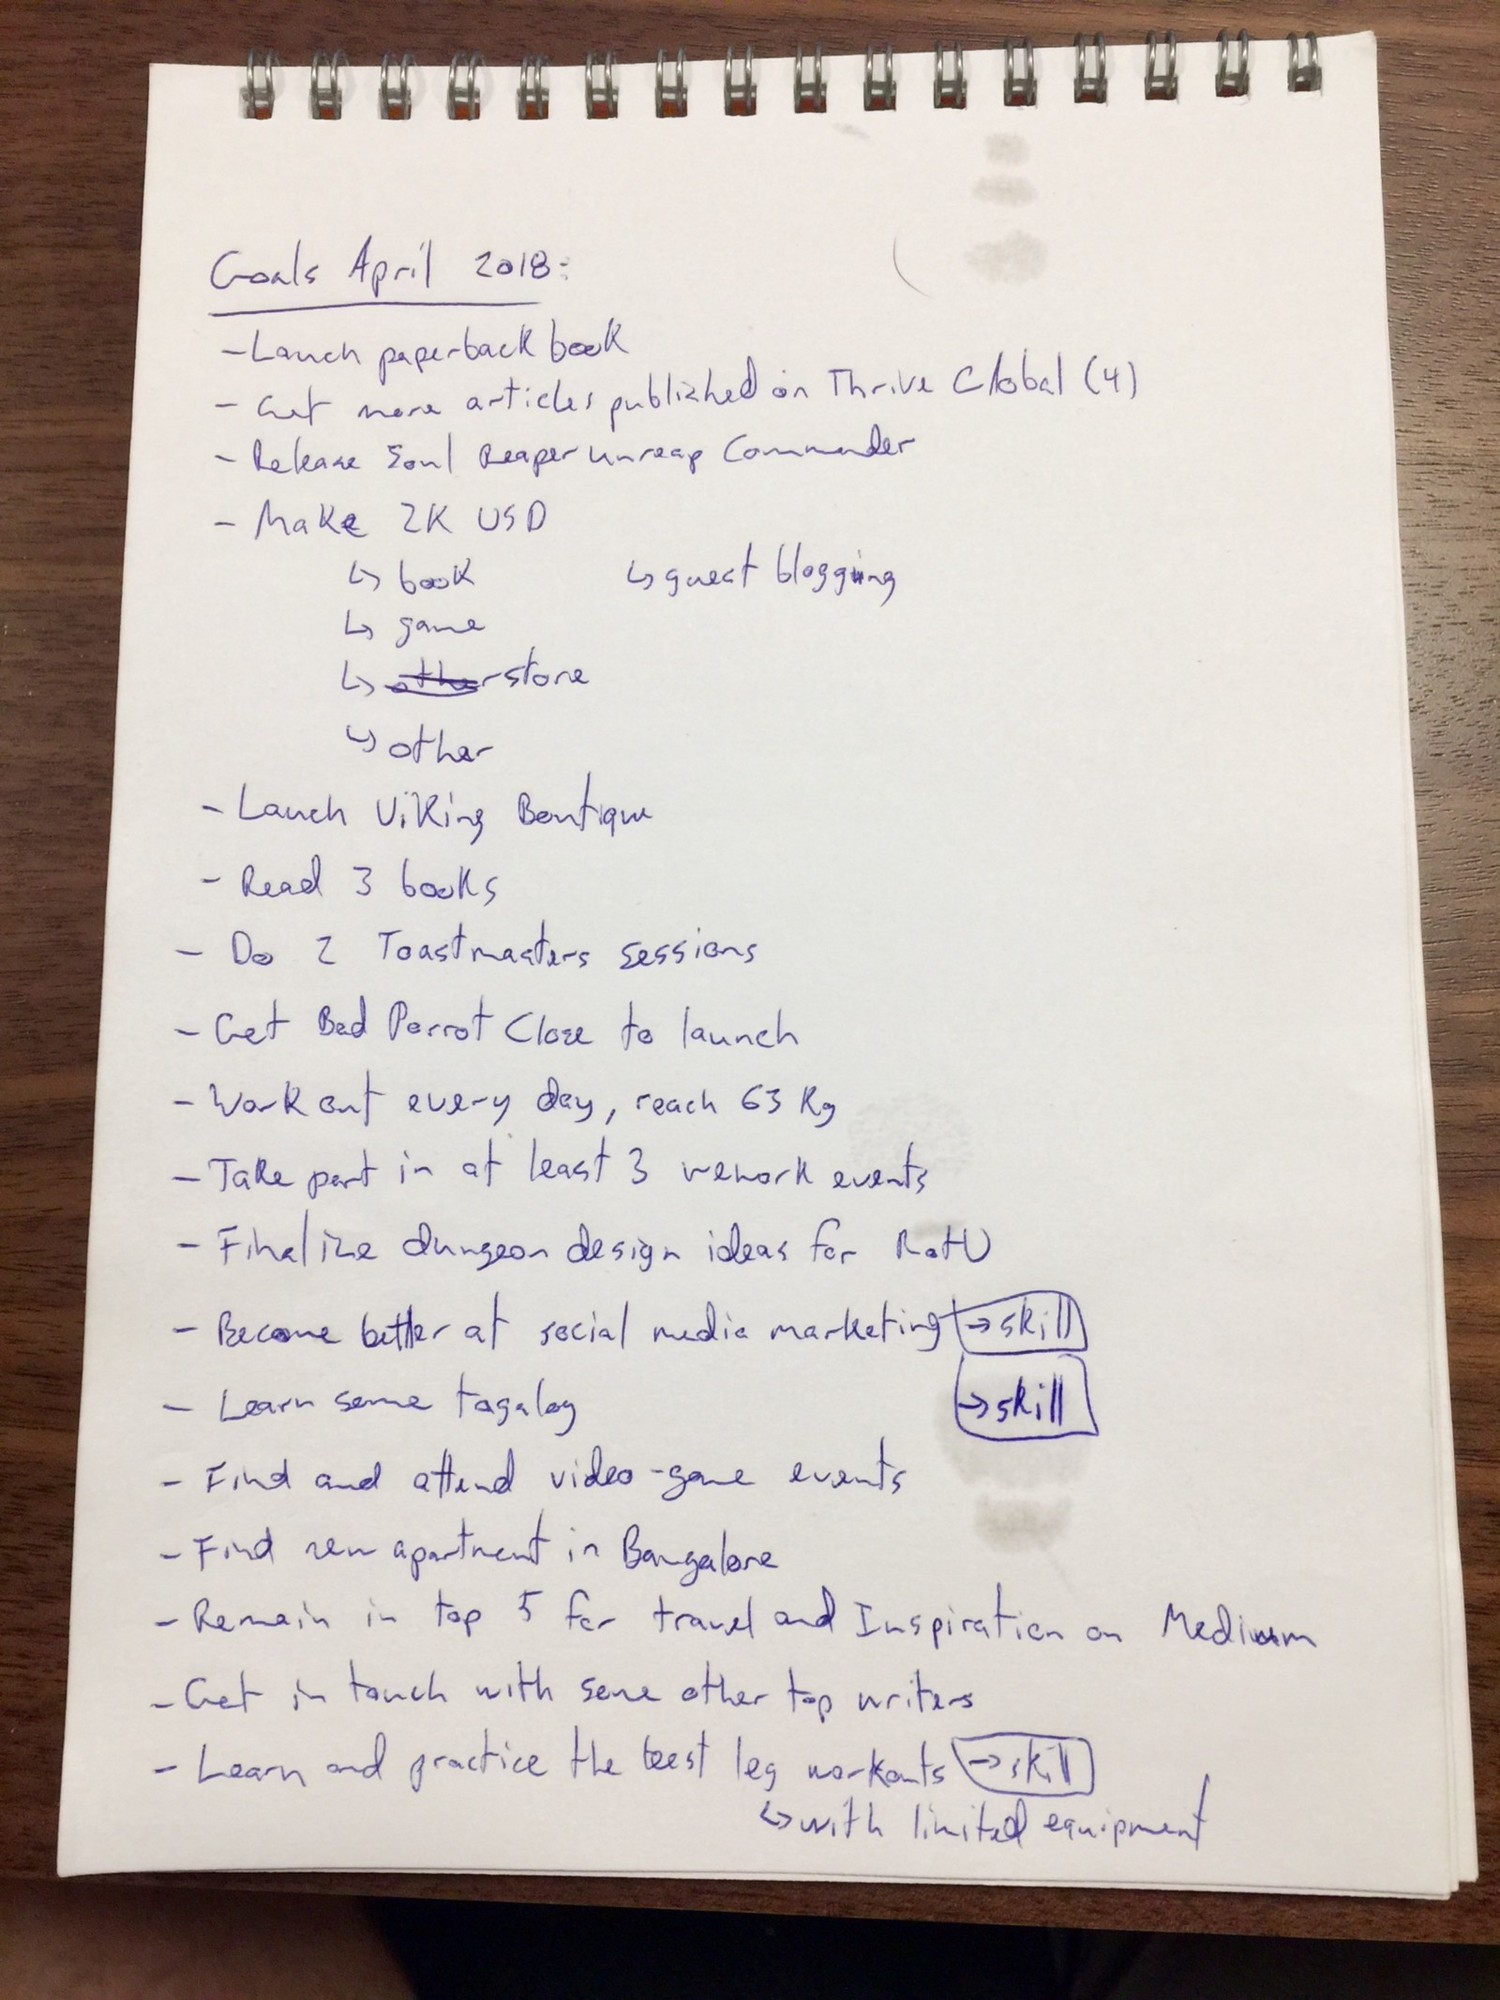 Goals April 2018:
- Lauch paperback book
- Get more articles published on Thrive Global (4)
- Release Soul Reaper Unreap Commander
- Make 2K USD
↳ book ↳ guest blogging
↳ game
↳ other store
↳ other
- Lauch Viking Boutique
- Read 3 books
- Do 2 Toastmasters sessions
- Get Bad Parrot Close to launch
- Work out every day, reach 63 Kg
- Take part in at least 3 wework events
- Finalize dungeon design ideas for RotU
- Become better at social media marketing → skill
- Learn some tagalog → skill
- Find and attend video-game events
- Find new apartment in Bangalore
- Remain in top 5 for travel and Inspiration on Medium
- Get in touch with some other top writers
- Learn and practice the best leg workouts → skill
↳ with limited equipment